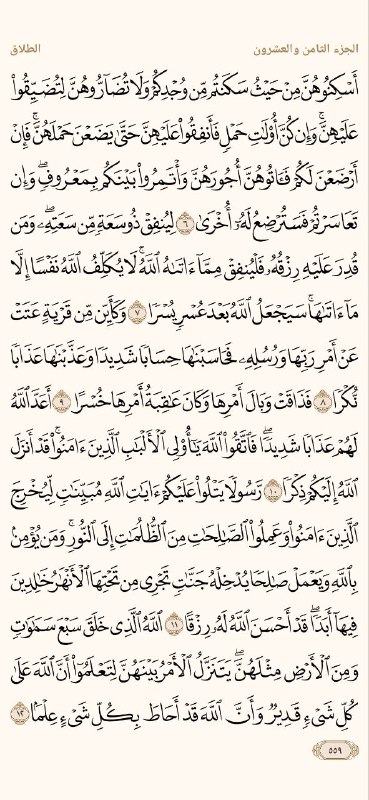 الجزء الثامن والعشرون
الطلاق
أَسْكِنُوهُنَّ مِنْ حَيْثُ سَكَنتُم مِّن وُجْدِكُمْ وَلَا تُضَآرُّوهُنَّ لِتُضَيِّقُوا۟
عَلَيْهِنَّ ۚ وَإِن كُنَّ أُو۟لَٰتِ حَمْلٍ فَأَنفِقُوا۟ عَلَيْهِنَّ حَتَّىٰ يَضَعْنَ حَمْلَهُنَّ ۚ فَإِنْ
أَرْضَعْنَ لَكُمْ فَـَٔاتُوهُنَّ أُجُورَهُنَّ ۖ وَأْتَمِرُوا۟ بَيْنَكُم بِمَعْرُوفٍ ۖ وَإِن
تَعَاسَرْتُمْ فَسَتُرْضِعُ لَهُۥٓ أُخْرَىٰ ٦ لِيُنفِقْ ذُو سَعَةٍ مِّن سَعَتِهِۦ ۖ وَمَن
قُدِرَ عَلَيْهِ رِزْقُهُۥ فَلْيُنفِقْ مِمَّآ ءَاتَىٰهُ ٱللَّهُ ۚ لَا يُكَلِّفُ ٱللَّهُ نَفْسًا إِلَّا
مَآ ءَاتَىٰهَا ۚ سَيَجْعَلُ ٱللَّهُ بَعْدَ عُسْرٍ يُسْرًا ٧ وَكَأَيِّن مِّن قَرْيَةٍ عَتَتْ
عَنْ أَمْرِ رَبِّهَا وَرُسُلِهِۦ فَحَاسَبْنَٰهَا حِسَابًا شَدِيدًا وَعَذَّبْنَٰهَا عَذَابًا
نُّكْرًا ٨ فَذَاقَتْ وَبَالَ أَمْرِهَا وَكَانَ عَٰقِبَةُ أَمْرِهَا خُسْرًا ٩ أَعَدَّ ٱللَّهُ
لَهُمْ عَذَابًا شَدِيدًا ۖ فَٱتَّقُوا۟ ٱللَّهَ يَٰٓأُو۟لِى ٱلْأَلْبَٰبِ ٱلَّذِينَ ءَامَنُوا۟ ۚ قَدْ أَنزَلَ
ٱللَّهُ إِلَيْكُمْ ذِكْرًا ١٠ رَّسُولًا يَتْلُوا۟ عَلَيْكُمْ ءَايَٰتِ ٱللَّهِ مُبَيِّنَٰتٍ لِّيُخْرِجَ
ٱلَّذِينَ ءَامَنُوا۟ وَعَمِلُوا۟ ٱلصَّٰلِحَٰتِ مِنَ ٱلظُّلُمَٰتِ إِلَى ٱلنُّورِ ۚ وَمَن يُؤْمِنۢ
بِٱللَّهِ وَيَعْمَلْ صَٰلِحًا يُدْخِلْهُ جَنَّٰتٍ تَجْرِى مِن تَحْتِهَا ٱلْأَنْهَٰرُ خَٰلِدِينَ
فِيهَآ أَبَدًا ۖ قَدْ أَحْسَنَ ٱللَّهُ لَهُۥ رِزْقًا ١١ ٱللَّهُ ٱلَّذِى خَلَقَ سَبْعَ سَمَٰوَٰتٍ
وَمِنَ ٱلْأَرْضِ مِثْلَهُنَّ يَتَنَزَّلُ ٱلْأَمْرُ بَيْنَهُنَّ لِتَعْلَمُوٓا۟ أَنَّ ٱللَّهَ عَلَىٰ
كُلِّ شَىْءٍ قَدِيرٌ وَأَنَّ ٱللَّهَ قَدْ أَحَاطَ بِكُلِّ شَىْءٍ عِلْمًۢا ١٢
٥٥٩